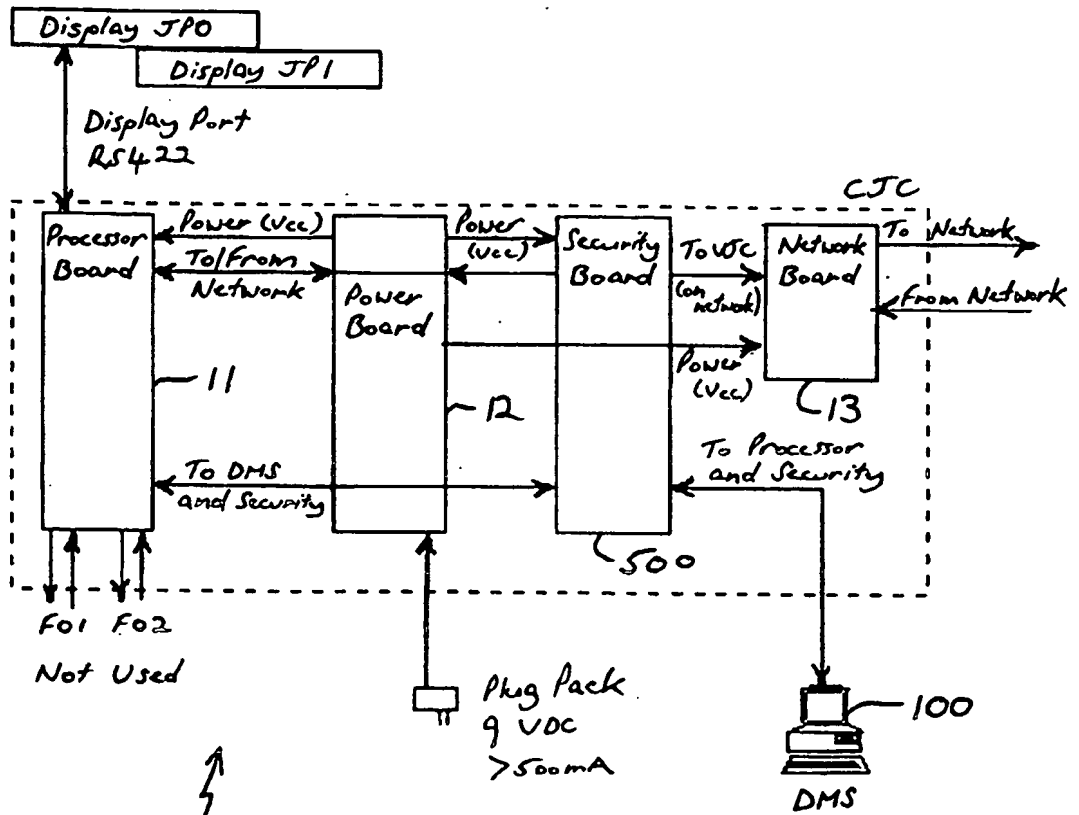 Display JP0
Display JP1
Display Port
RS422
CJC
Processor
Board
Power (Vcc)
To/From
Network
Power
Board
Power
(Vcc)
Security
Board
To VJC
(on
network)
Network
Board
To Network
From Network
Power
(Vcc)
11
12
13
To DMS
and Security
To Processor
and Security
500
FO1 FO2
Not Used
Plug Pack
9 VDC
>500mA
100
DMS